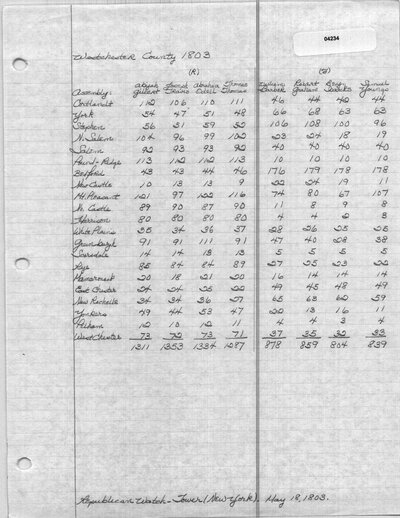 04234
Westchester County 1803
(R) (F)
Assembly: Abijah Gilbert Joseph Travis Abraham Odell Thomas Thomas William Barker Robert Graham Samuel Youngs
Cortlandt 112 106 110 111 46 44 42 44
York 54 47 51 48 66 68 63 63
Stephen 56 51 59 52 106 108 100 96
N. Salem 104 96 99 102 23 24 18 19
Salem 92 93 93 92 40 40 40 40
Pound-Ridge 113 112 112 113 10 10 10 10
Bedford 43 43 44 46 176 179 178 178
New Castle 10 13 13 9 22 24 19 11
Mt. Pleasant 121 97 122 116 74 80 67 107
N. Castle 89 90 87 90 11 8 9 8
Harrison 80 80 80 80 4 4 2 3
White Plains 35 34 36 37 28 26 25 25
Greenburgh 91 91 111 91 47 40 28 38
Scarsdale 14 14 13 13 5 5 5 5
Rye 85 84 84 89 27 25 23 22
Mamaroneck 20 18 21 20 16 14 14 14
East Chester 24 24 25 22 49 45 48 49
New Rochelle 34 34 36 27 65 63 62 59
Yonkers 49 44 53 47 22 13 16 11
Pelham 12 10 12 11 4 4 3 4
West Chester 73 72 73 71 37 35 32 33
1311 1353 1334 1287 878 859 804 839
Republican Watch-Tower (New York). May 18, 1803.